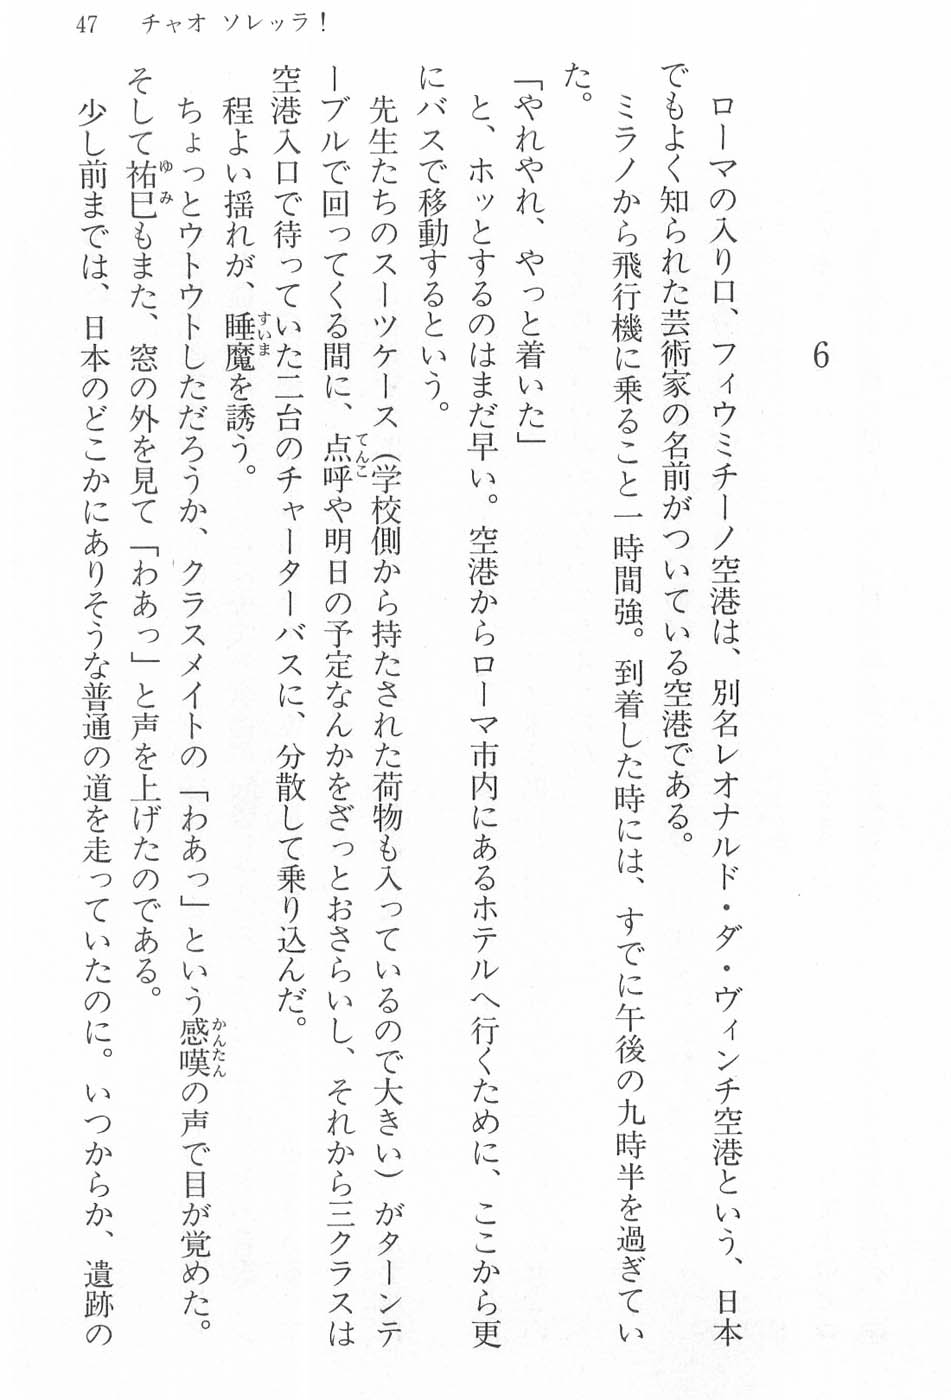 47 チャオ ソレッラ！
6
ローマの入り口、フィウミチーノ空港は、別名レオナルド・ダ・ヴィンチ空港という、日本
でもよく知られた芸術家の名前がついている空港である。
ミラノから飛行機に乗ること一時間強。到着した時には、すでに午後の九時半を過ぎてい
た。
「やれやれ、やっと着いた」
と、ホッとするのはまだ早い。空港からローマ市内にあるホテルへ行くために、ここから更
にバスで移動するという。
先生たちのスーツケース（学校側から持たされた荷物も入っているので大きい）がターンテ
ーブルで回ってくる間に、点呼や明日の予定なんかをざっとおさらいし、それから三クラスは
空港入口で待っていた二台のチャーターバスに、分散して乗り込んだ。
程よい揺れが、睡魔を誘う。
ちょっとウトウトしただろうか、クラスメイトの「わあっ」という感嘆の声で目が覚めた。
そして祐巳もまた、窓の外を見て「わあっ」と声を上げたのである。
少し前までは、日本のどこかにありそうな普通の道を走っていたのに。いつからか、遺跡の
てんこ
すいま
かんたん
ゆみ